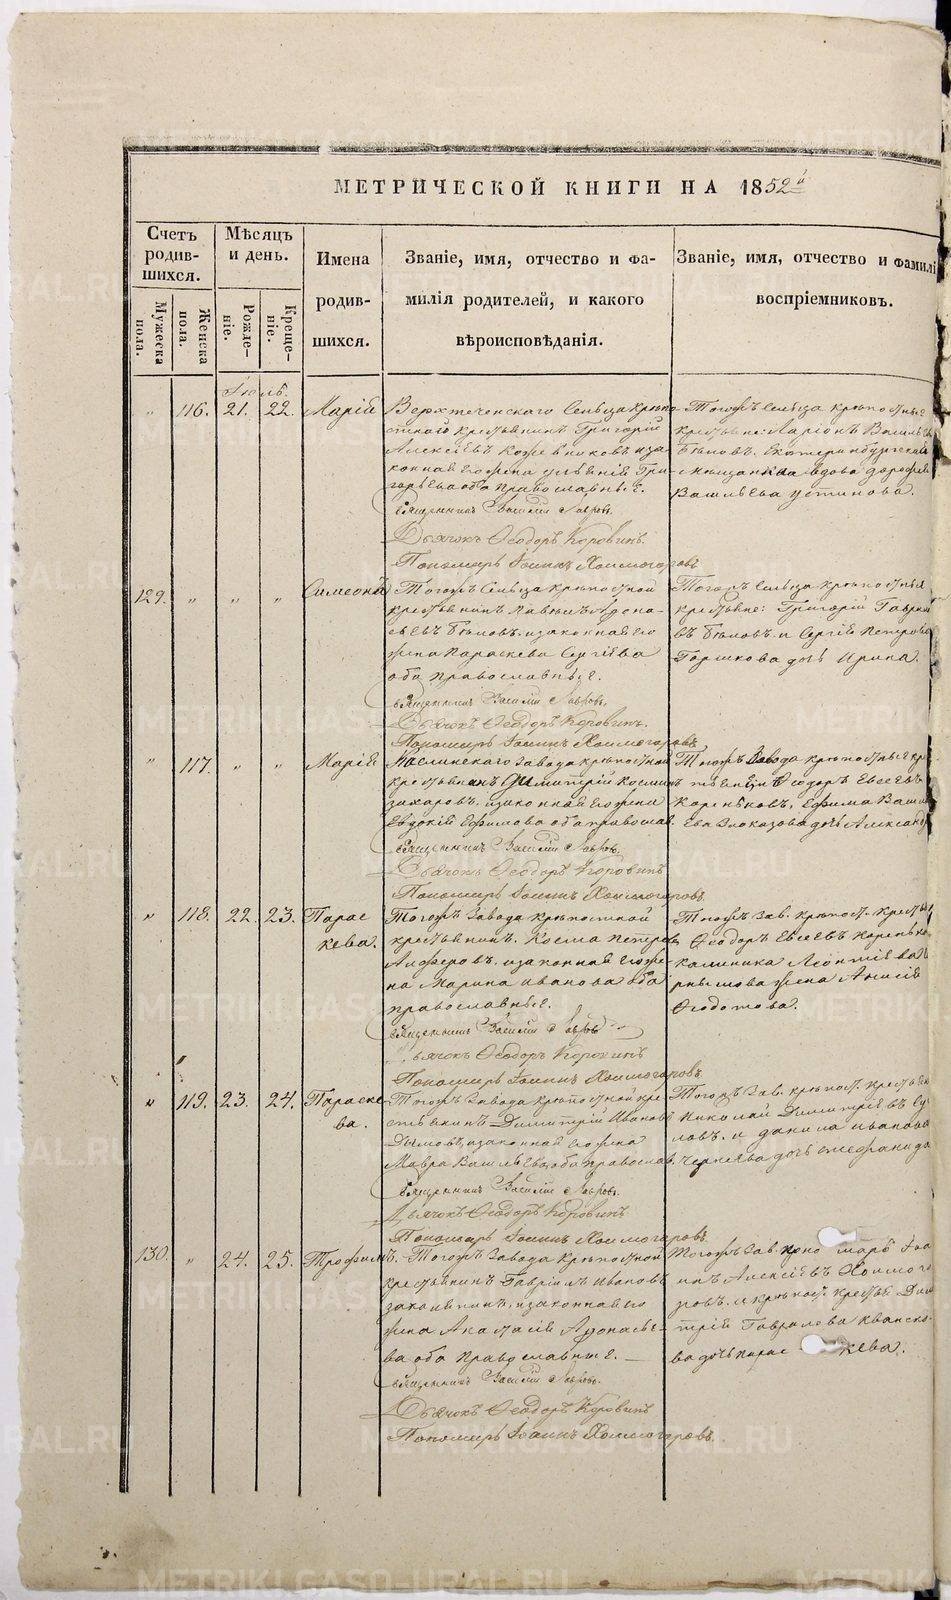 МЕТРИЧЕСКОЙ КНИГИ НА 1852й
Счетъ родив-шихся.
Мѣсяцъ и день.
Имена родив-шихся.
Званіе, имя, отчество и фа-
милія родителей, и какого
вѣроисповѣданія.
Званіе, имя, отчество и фамилі
воспріемниковъ.
Мужеска пола.
Женска пола.
Рожде-ніе.
Креще-ніе.
Іюль.
" 116. 21. 22. Марія
Верхтеченскаго Сельца крѣпо-
стнаго крестьянинъ Григорій
Алексѣевъ Кожевниковъ и за-
конная его жена Гри-
горьева оба православные.
Священникъ Василій Лавровъ
Дьячокъ Ѳеодоръ Коровинъ.
Пономарь Іоаннъ Холмогоровъ
Тогожъ Сельца крѣпостные
крестьяне: Ларіонъ Василь
Бѣловъ, Екатеринбургская
мѣщанка вдова
Васильева Устинова.
129. " " " Симеонъ
Тогожъ Сельца крѣпостной
крестьянинъ Аѳона-
сьевъ Бѣловъ, и законная его
жена Параскева Сергіева
оба православные.
Священникъ Василій Лавровъ
Дьячокъ Ѳеодоръ Коровинъ.
Пономарь Іоаннъ Холмогоровъ
Тогожъ Сельца крѣпостные
крестьяне: Григорій Гаврил
въ Бѣловъ и Сергія Петрова
Горшкова дочь Ирина.
" 117. " " Марія
Каслинскаго Завода крѣпостной
крестьянинъ Димитрій Космин
Захаровъ, и законная его жена
Евдокія Ефимова оба православ.
Священникъ Василій Лавровъ
Дьячокъ Ѳеодоръ Коровинъ
Пономарь Іоаннъ Холмогоровъ.
Тогожъ Завода крѣпостные кре
стьянинъ Ѳеодоръ Евсеевъ
Ефима Васил
ева Злоказова дочь Александр
" 118. 22. 23. Парас
кева.
Тогожъ Завода крѣпостной
крестьянинъ Косма Петровъ
Алферовъ, и законная его же-
на Марина Иванова оба
православные.
Священникъ Василій Лавровъ
Дьячокъ Ѳеодоръ Коровинъ
Пономарь Іоаннъ Холмогоровъ.
Тогожъ Зав. крѣпост. крестья
Ѳеодоръ Евсеевъ
Калиника Леонтіева
жена Анисія
Ѳеодотова.
" 119. 23. 24. Параске
ва.
Тогожъ Завода крѣпостной кре
стьянинъ Димитрій Ивановъ
Дымовъ, и законная его жена
Мавра Васильева, оба православ.
Священникъ Василій Лавровъ
Дьячокъ Ѳеодоръ Коровинъ
Пономарь Іоаннъ Холмогоровъ.
Тогожъ Зав. крѣпост. крестьян
Николай Димитріевъ Су
ловъ. и Данила Иванова
дочь Стефанида
130. " 24. 25. Трофимъ.
Тогожъ Завода крѣпостной
крестьянинъ Гавріилъ Ивановъ
и законная его
жена Анастасія Аѳонасье-
ва оба православные.
Священникъ Василій Лавровъ.
Дьячокъ Ѳеодоръ Коровинъ
Пономарь Іоаннъ Холмогоровъ.
Тогожъ Зав. поно марь Іоа
инъ Алексіевъ Холмого
ровъ. и крѣпост. крестья Дим
трія Гаврилова
ва дочь Парас кева.
METRIKI.GASO-URAL.RU